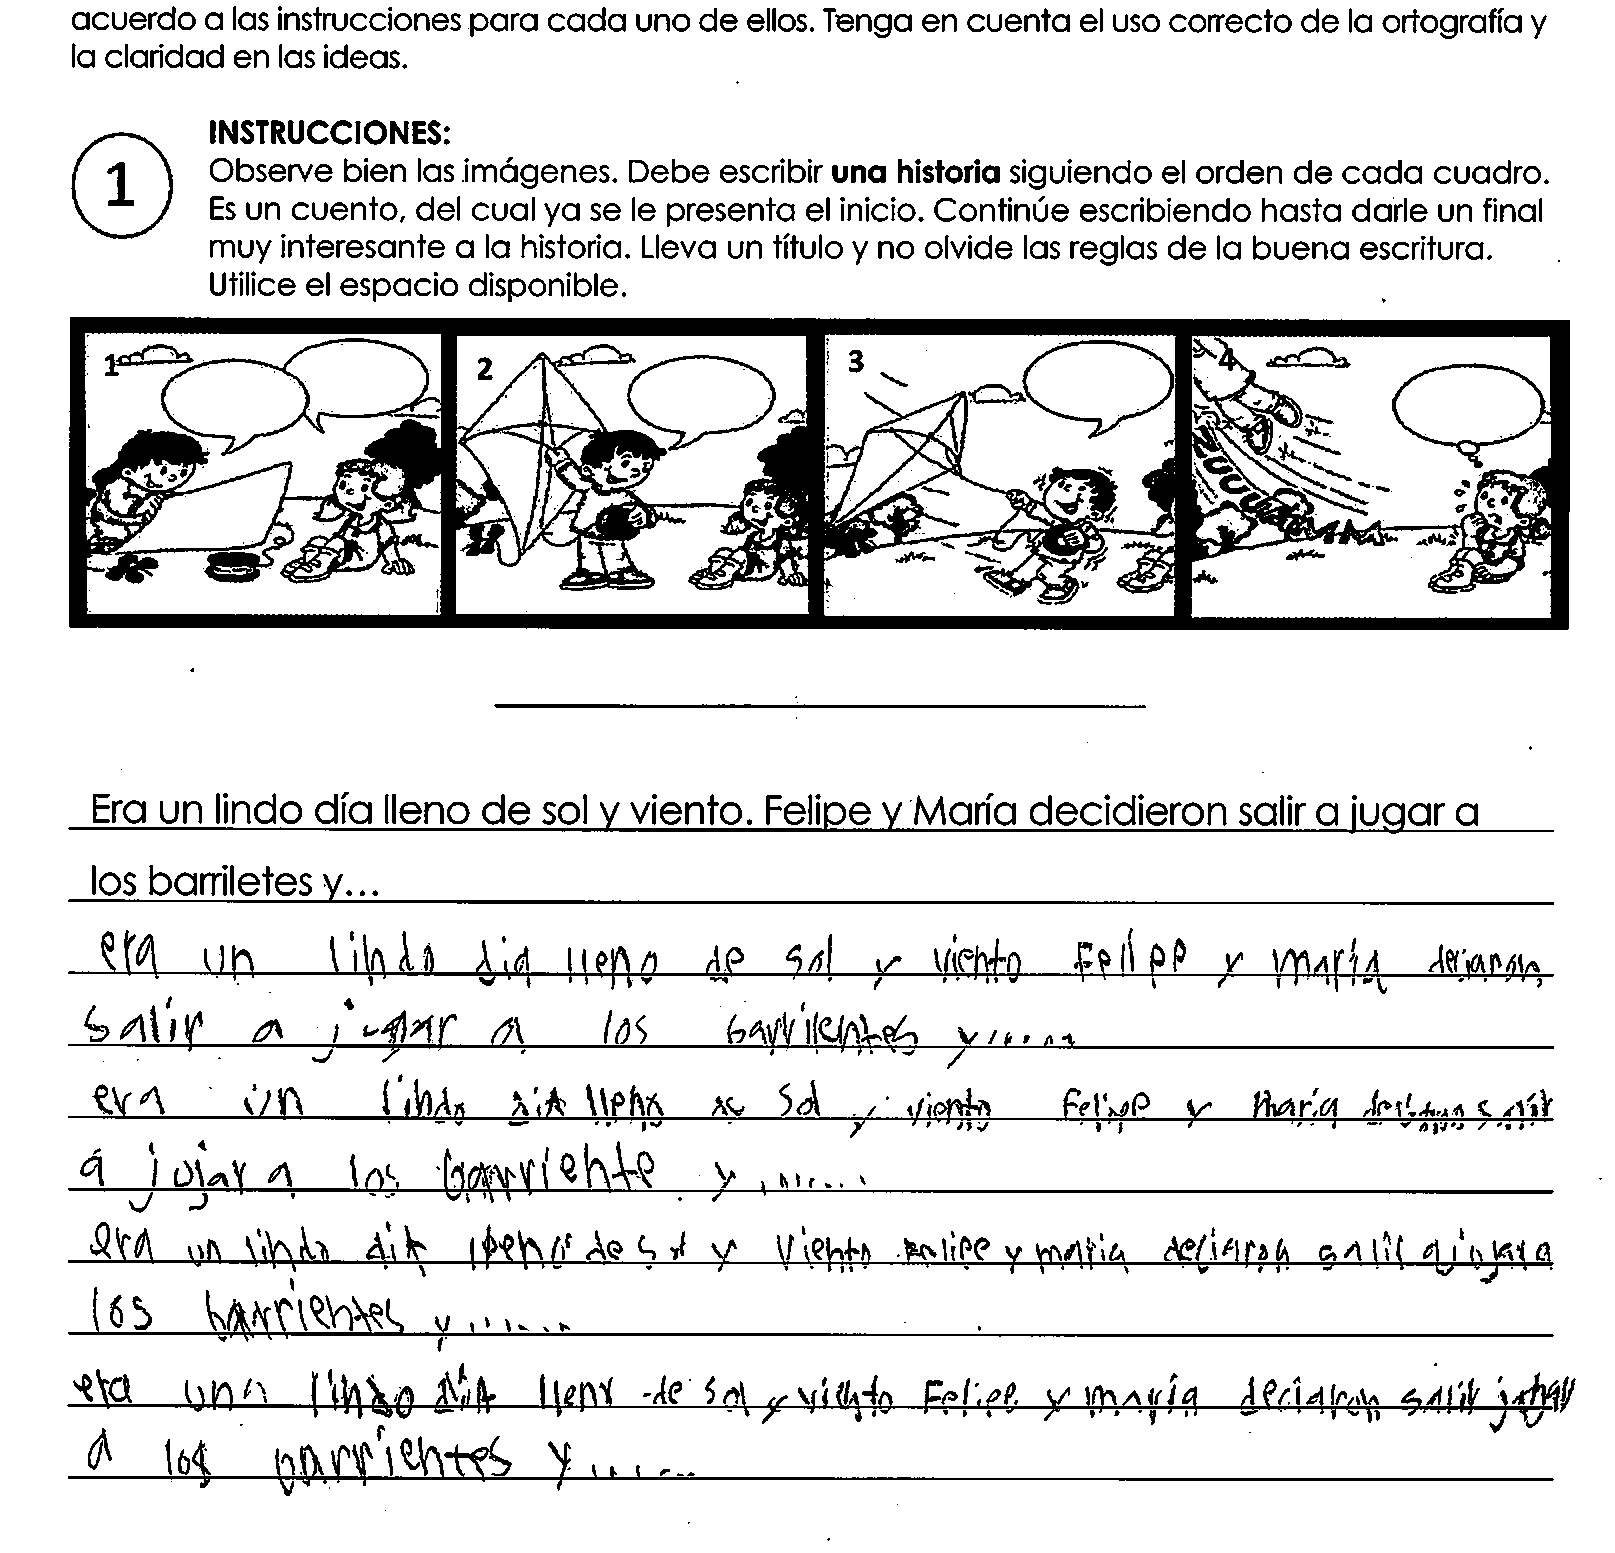 acuerdo a las instrucciones para cada uno de ellos. Tenga en cuenta el uso correcto de la ortografía y
la claridad en las ideas.
INSTRUCCIONES:
1
Observe bien las imágenes. Debe escribir una historia siguiendo el orden de cada cuadro.
Es un cuento, del cual ya se le presenta el inicio. Continúe escribiendo hasta darle un final
muy interesante a la historia. Lleva un título y no olvide las reglas de la buena escritura.
Utilice el espacio disponible.
1 2 3 4
Era un lindo día lleno de sol y viento. Felipe y María decidieron salir a jugar a
los barriletes y...
era un lindo dia lleno de sol y viento Felipe y maria
salir a jugar a los barrilentes y......
era un lindo dia lleno de sol y viento Felipe y maria
a jujar a los barriente y .......
era un lindo dia de sol y viento Felipe y maria deciaron salir
los barrientes y......
era una lindo dia de sol y viento Felipe y maria deciaron salir
a los barrientes y......